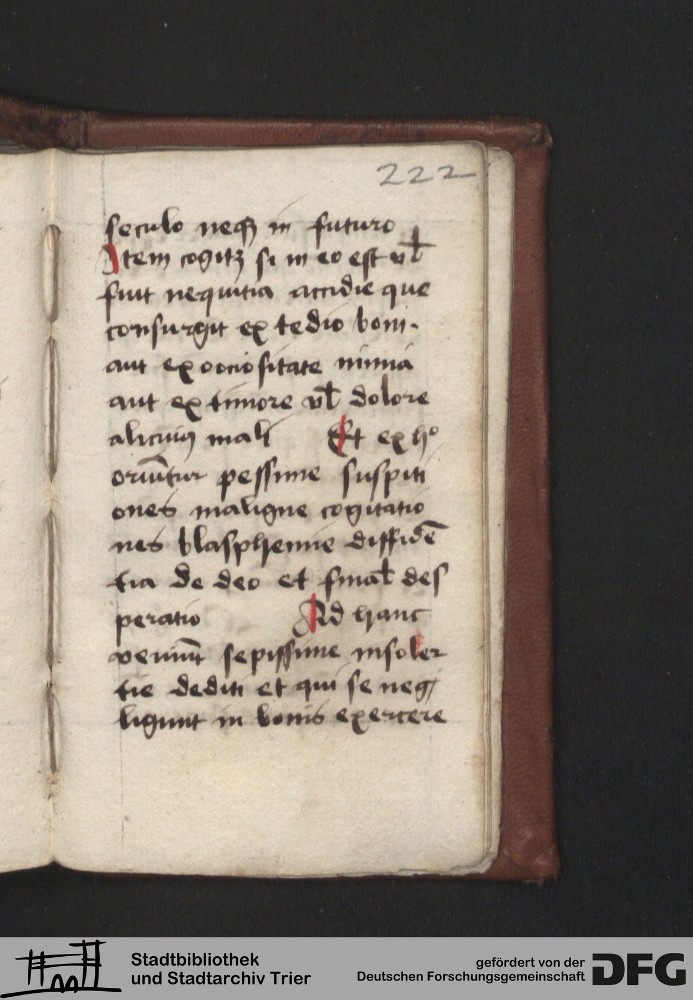 222
seculo neqꝫ in futuro
Item cogitꝫ si in eo est vl̄
fuit nequitia accidie que
consurgit ex tedio boni.
aut ex occiositate nimia
aut ex timore vl̄ dolore
alicuiꝰ mali Et ex hͦ
oriūtur pessime suspiti
ones maligne cogitatio
nes blasphemie diffidē
tia de deo et final̄ des
peratio Ad hanc
veniūt sepissime insoler
tie dediti et qui se neg
ligunt in bonis exercere
Stadtbibliothek
und Stadtarchiv Trier
gefördert von der
Deutschen Forschungsgemeinschaft
DFG